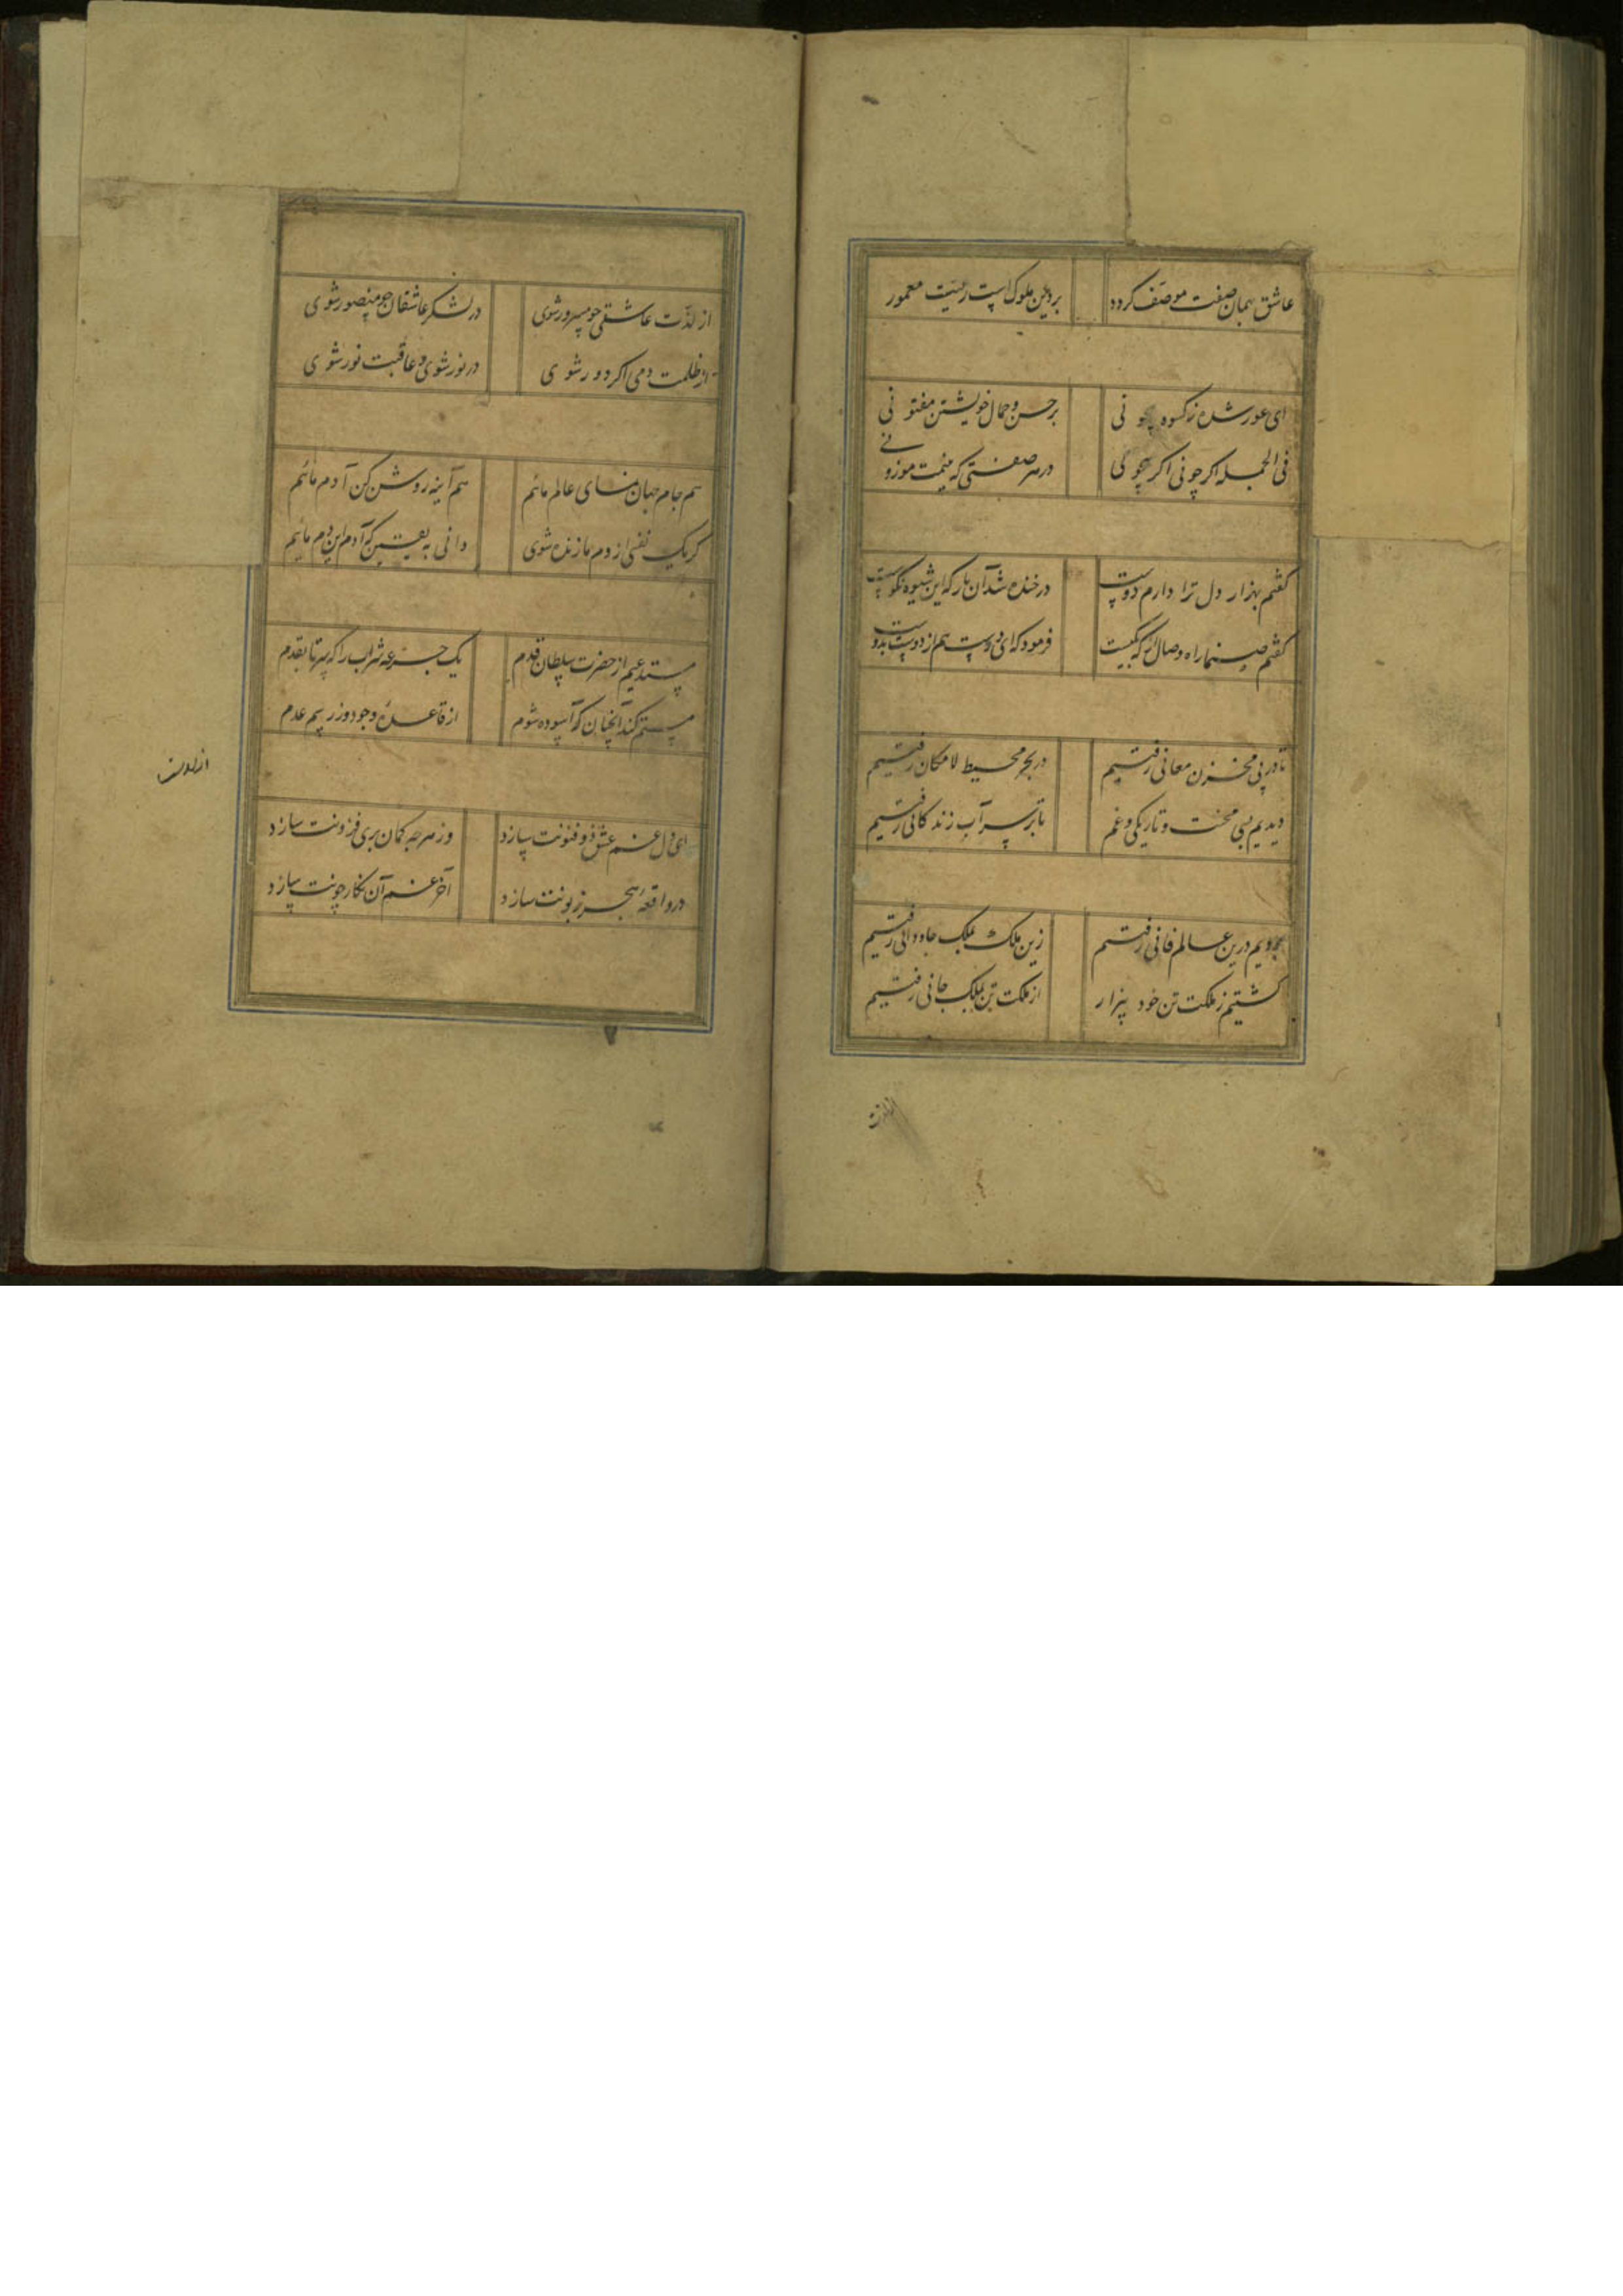 عاشق بهمان صفت موصف کردد بر دین ملوک است رعیت معمور
ای عور شده ز کسوه چونی بر حسن و جمال خویشتن مفتونی
فی الجمله اکر چونی اکر بیچونی در هر صفتی که بینمت موزونی
کفتم بهزار دل ترا دارم دوست در خنده شد آن یار که این شیوه نکوست
کفتم صنما راه وصال تو که چیست فرمود که ای دوست هم از دوست بدوست
تا در پی مخزن معانی رفتیم در بحر محیط لامکان رفتیم
دیدیم بسی محنت و تاریکی و غم تا بر سر آب زندکانی رفتیم
درین عالم فانی رفتیم زین ملک بملک جاودانی رفتیم
کشتیم ز ملکت تن خود بیزار از ملکت تن بملک جانی رفتیم
از لذت عاشقی چو مسرور شوی در لشکر عاشقان چو منصور شوی
از ظلمت دمی اکر دور شوی در نور شوی و عاقبت نور شوی
هم جام جهان نمای عالم مائیم هم آینه روشن کن آدم مائیم
کر یک نفسی از دم ما زنده شوی دانی به یقین که آدم این دم مائیم
مستدعیم از حضرت سلطان قدم یک جرعه شراب را که سر تا بقدم
مستم کند آنچنان که آسوده شوم از قاعده وجود وز رسم عدم
ای دل غم عشق ذو فنونت سازد وز هر چه کمان بری فزونت سازد
در واقعه هجر زبونت سازد آخر غم آن نکار چونت سازد